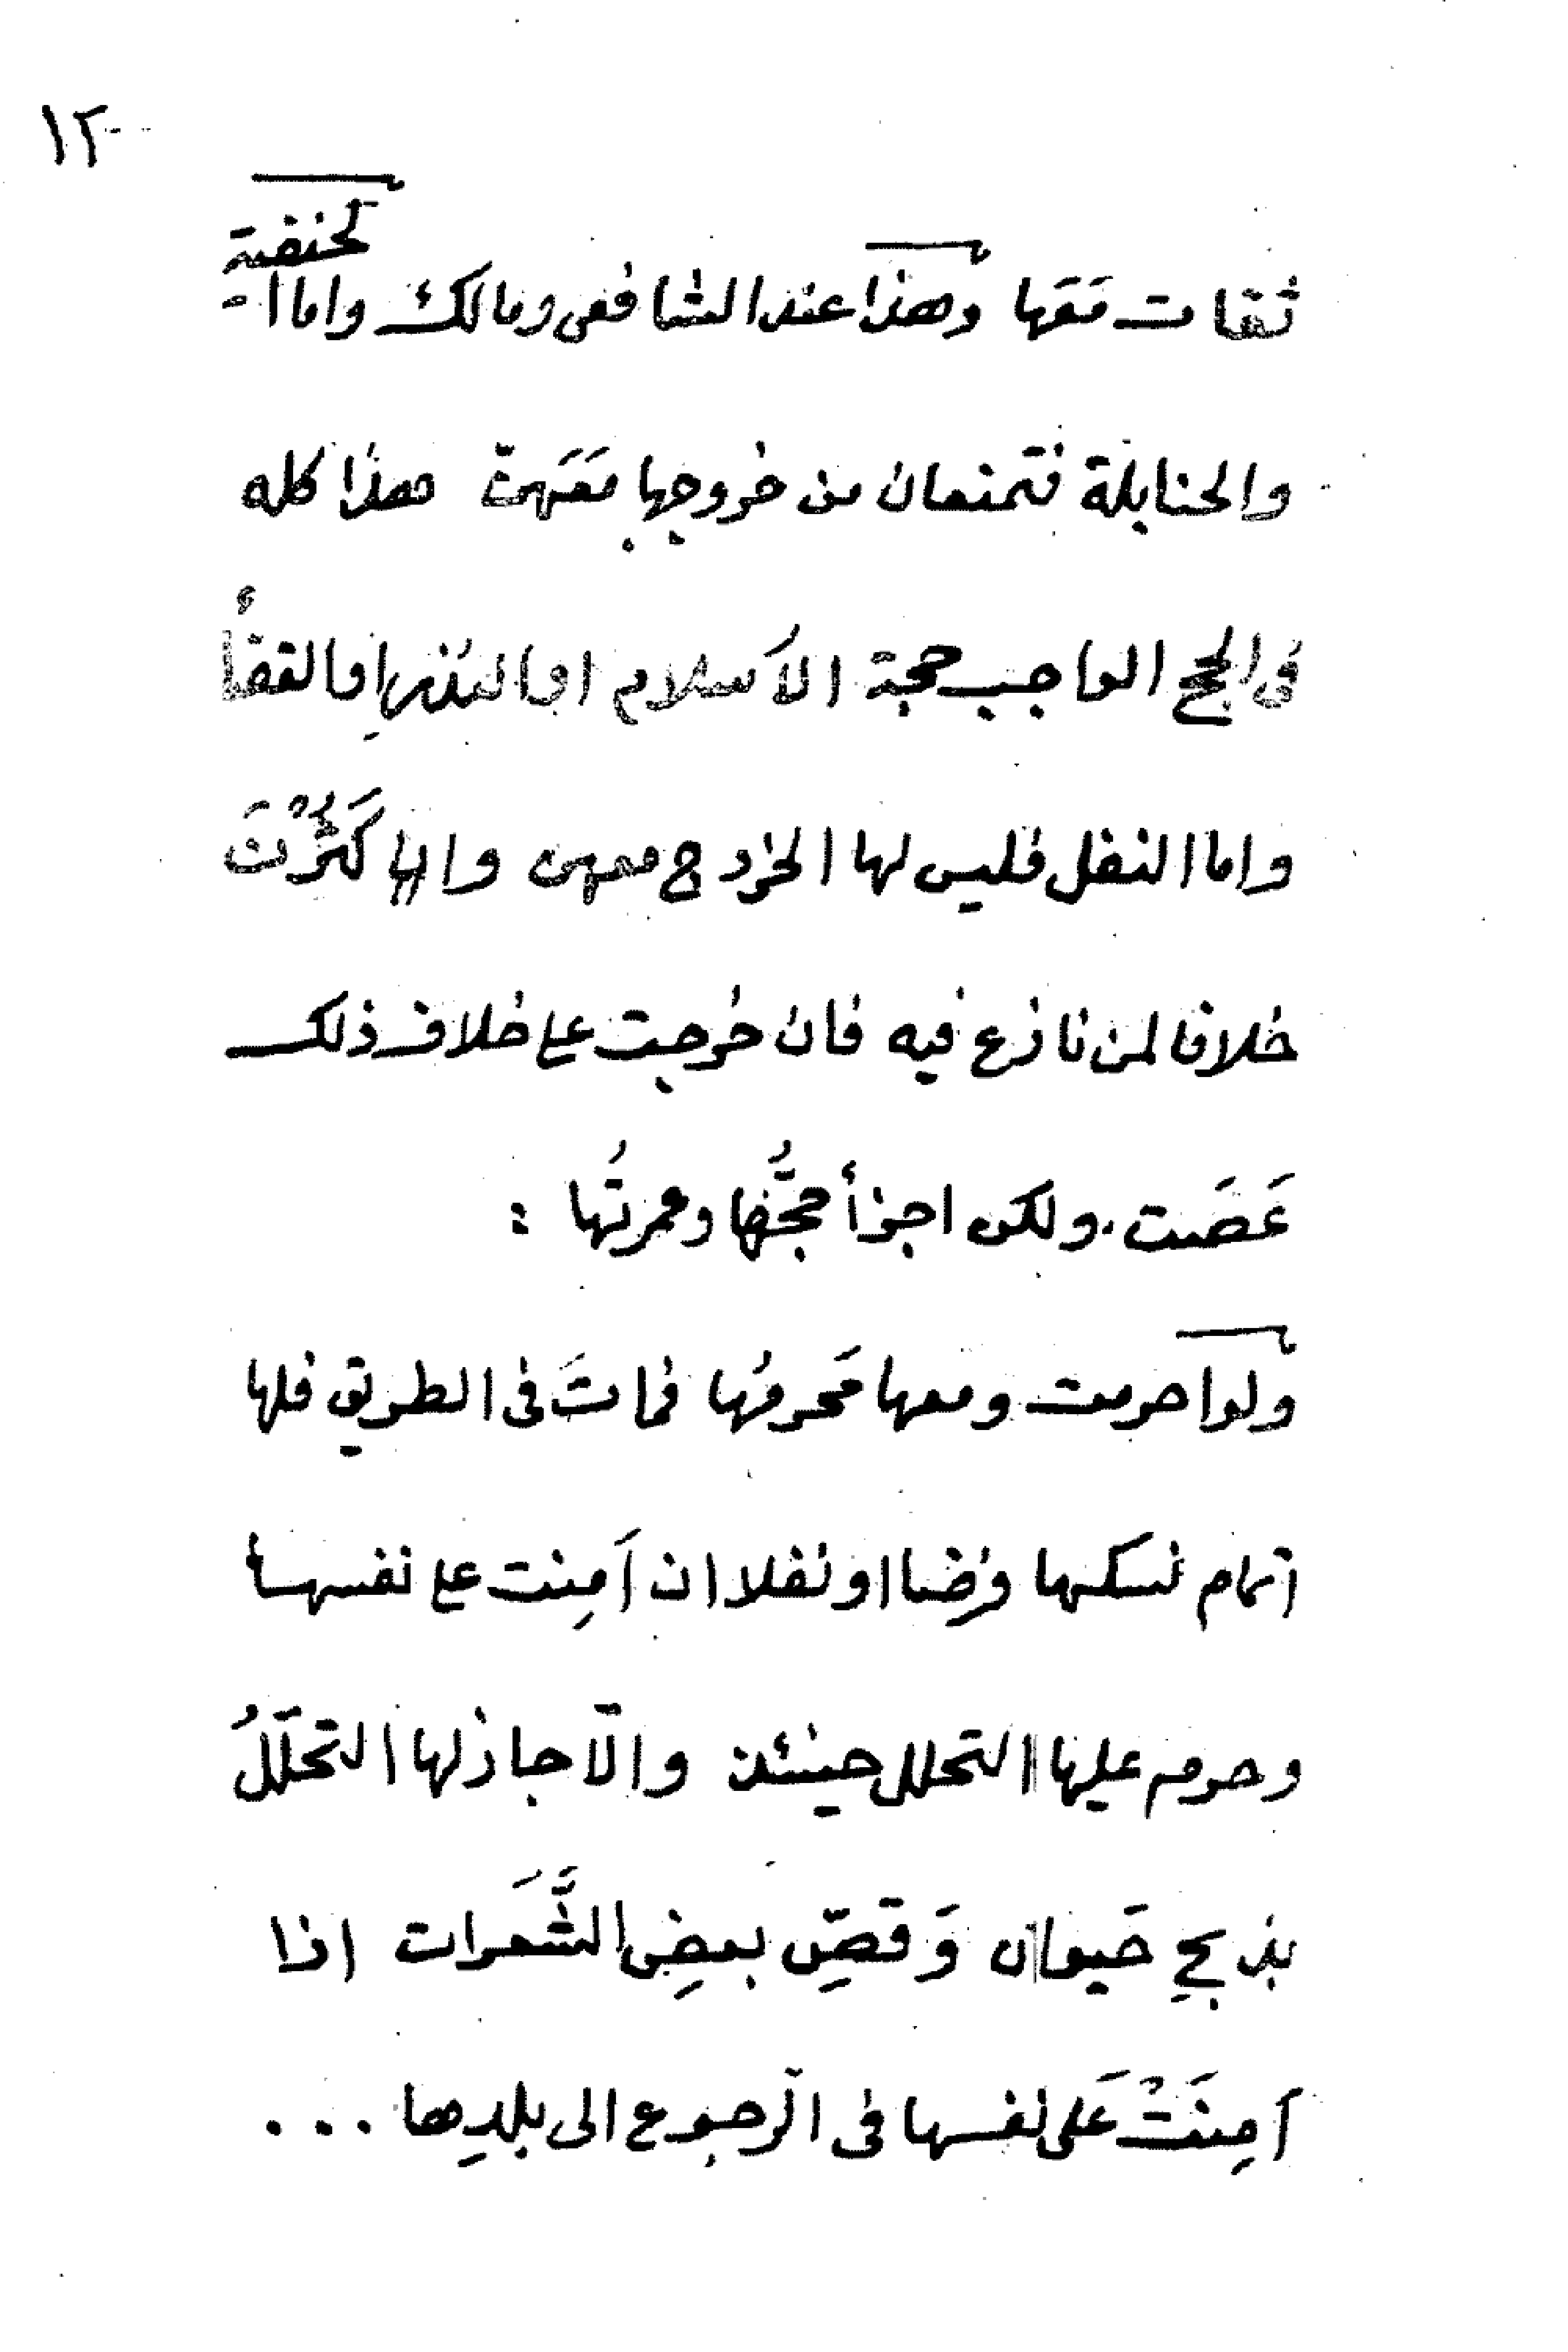 ١٢
ثقات مَعَها وهذا عند الشافعى ومالك واما الحنفية
والحنابلة فتمنعان من خروجها مَعَهنّ هذا كله
فى الحج الواجب حجة الاَسلام او النذرِ او القضأُ
واما النفل فليس لها الخروج معهن وان كَثُرْتَ
خلافا لمن نازع فيه فان خرجت على خلاف ذلك
عَصَت. ولكن اجزأ حجُّها وعمرتُها :
ولو احرمت ومعها مَحرمُها فماتَ فى الطريق فلها
اتمام نسكها فرضا او نفلا ان اَمِنت على نفسها
وحرم عليها التحلل حينئذ والّا جاز لها التحلّلُ
بذبحِ حَيوان وَقصِّ بعضِ الشَّعَرات اذا
اَمِنَتْ عَلى نفسها فى الرجوع الى بلدِها . . .